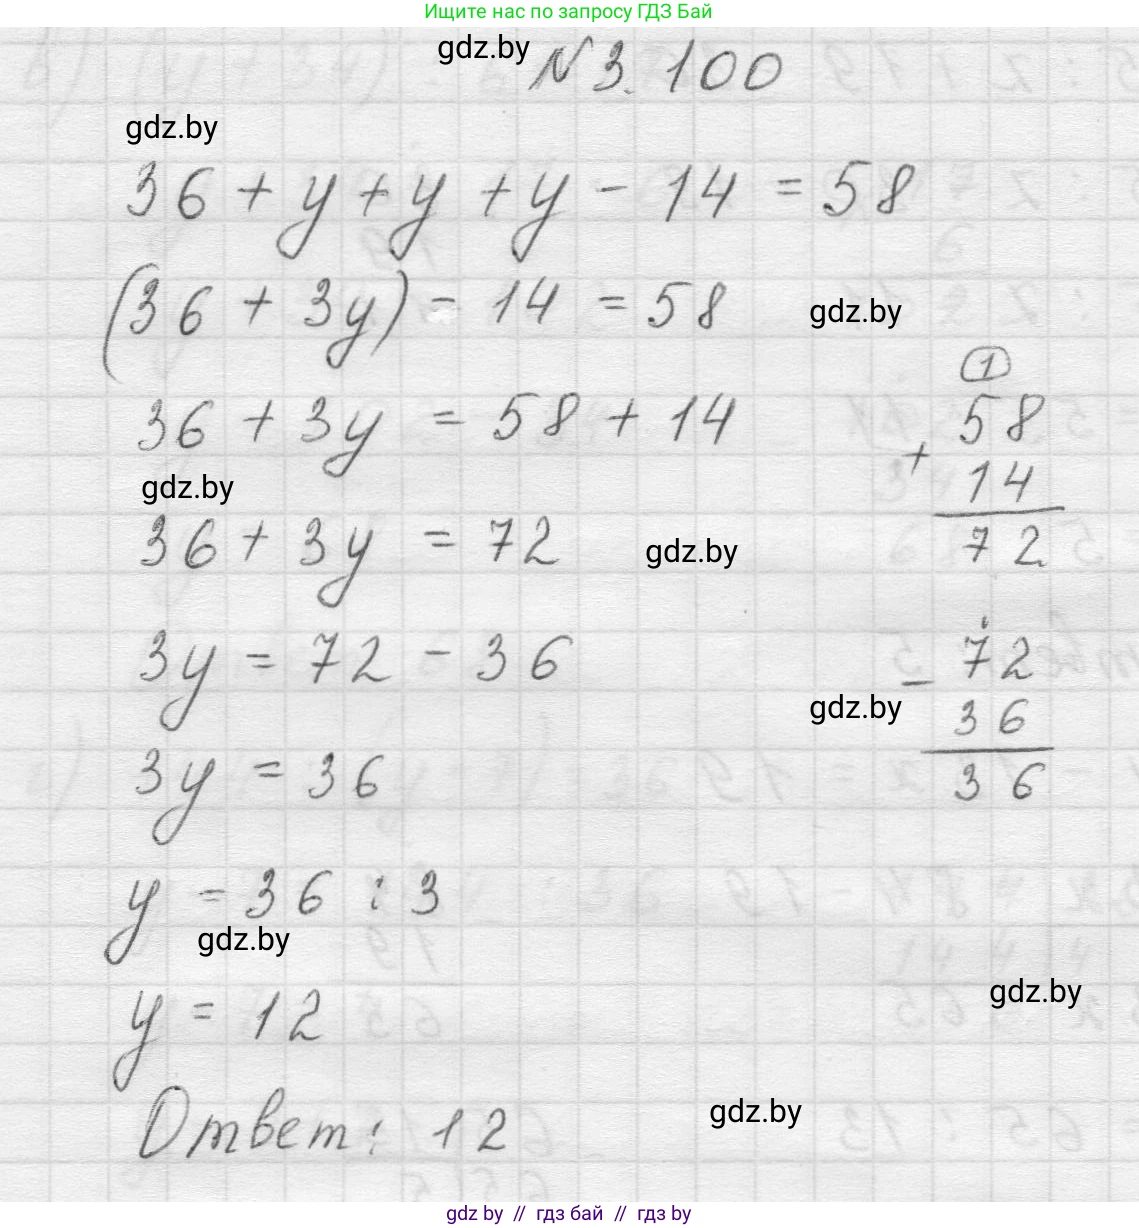 Ищите нас по запросу ГДЗ Бай
gdz.by
N 3.100
gdz.by
36 + y + y + y - 14 = 58
(36 + 3y) - 14 = 58
gdz.by
36 + 3y = 58 + 14
1
58
+
14
72
gdz.by
36 + 3y = 72
gdz.by
3y = 72 - 36
72
-
36
36
gdz.by
3y = 36
y = 36 : 3
gdz.by
y = 12
gdz.by
Ответ: 12
gdz.by
gdz by // гдз бай // гдз by